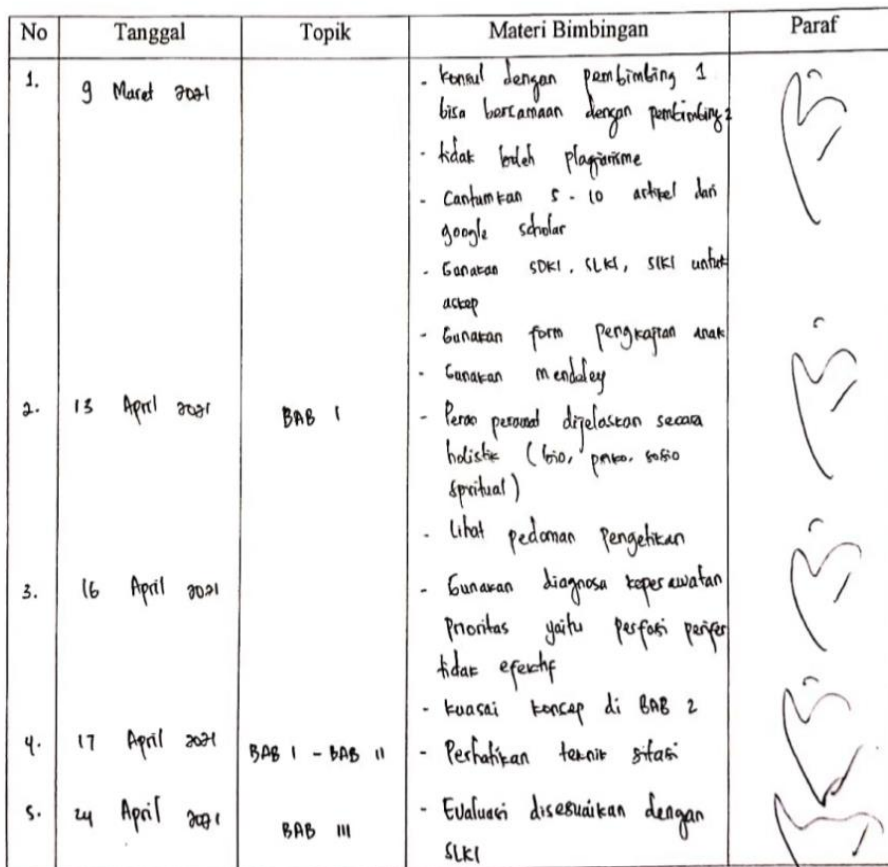 No Tanggal Topik Materi Bimbingan Paraf
1. 9 Maret 2021 - Konsul dengan pembimbing 1
bisa bersamaan dengan pembimbing 2
- tidak boleh plagiarisme
- Cantumkan 5 - 10 artikel dari
google scholar
- Gunakan SDKI, SLKI, SIKI untuk
askep
- Gunakan form pengkajian anak
- Gunakan mendeley
2. 13 April 2021 BAB I - Peran perawat dijelaskan secara
holistik (bio, psiko, sosio
spritual)
- Lihat pedoman pengetikan
3. 16 April 2021 - Gunakan diagnosa keperawatan
Prioritas yaitu perfusi perifer
tidak efektif
- kuasai konsep di BAB 2
4. 17 April 2021 BAB I - BAB II - Perhatikan teknik sitasi
5. 24 April 2021 BAB III - Evaluasi disesuaikan dengan
SLKI